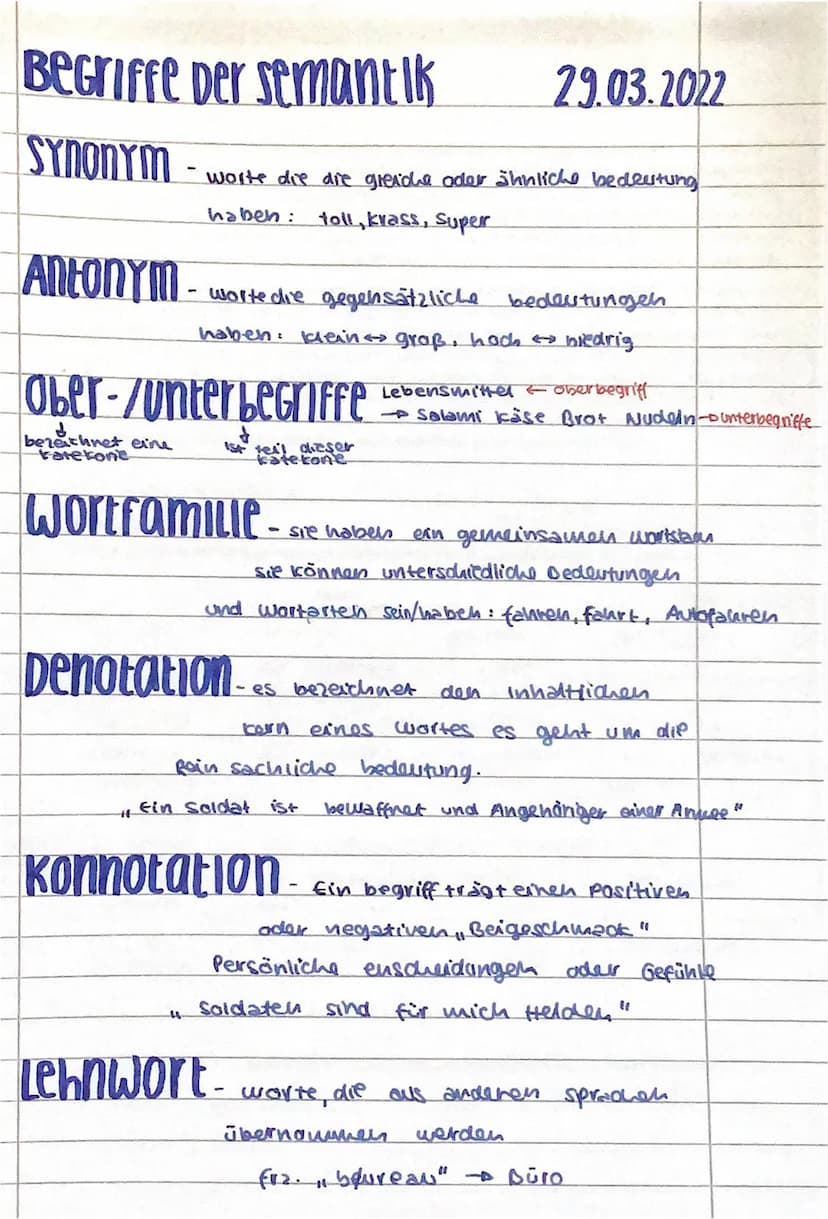 Begriffe der Semantik 29.03.2022
Synonym - worte die die gleiche oder ähnliche bedeutung
haben: toll, krass, super
Antonym - worte die gegensätzliche bedeutungen
haben: klein ↔ groß, hoch ↔ niedrig
Ober-/Unterbegriffe Lebensmittel ← oberbegriff
→ Salami Käse Brot Nudeln → unterbegriffe
bezeichnet eine ist teil dieser
katekorie katekorie
Wortfamilie - sie haben ein gemeinsamen wortstam
sie können unterschiedliche Bedeutungen
und wortarten sein/haben: fahren, fahrt, Autofahren
Denotation - es bezeichnet den inhaltlichen
kern eines wortes es geht um die
Rein sachliche bedeutung.
„Ein Soldat ist bewaffnet und Angehöriger einer Armee"
Konnotation - Ein begriff trägt einen positiven
oder negativen „Beigeschmack"
Persönliche enscheidungen oder Gefühle
„Soldaten sind für mich Helden"
Lehnwort - worte, die aus anderen sprachen
übernommen werden
frz. „bureau" → Büro